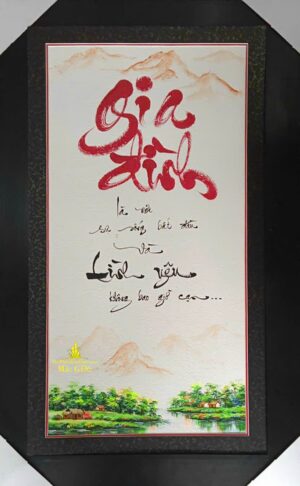 Gia
đình
là nơi
cuộc sống bắt đầu
và
tình yêu
không bao giờ cạn...